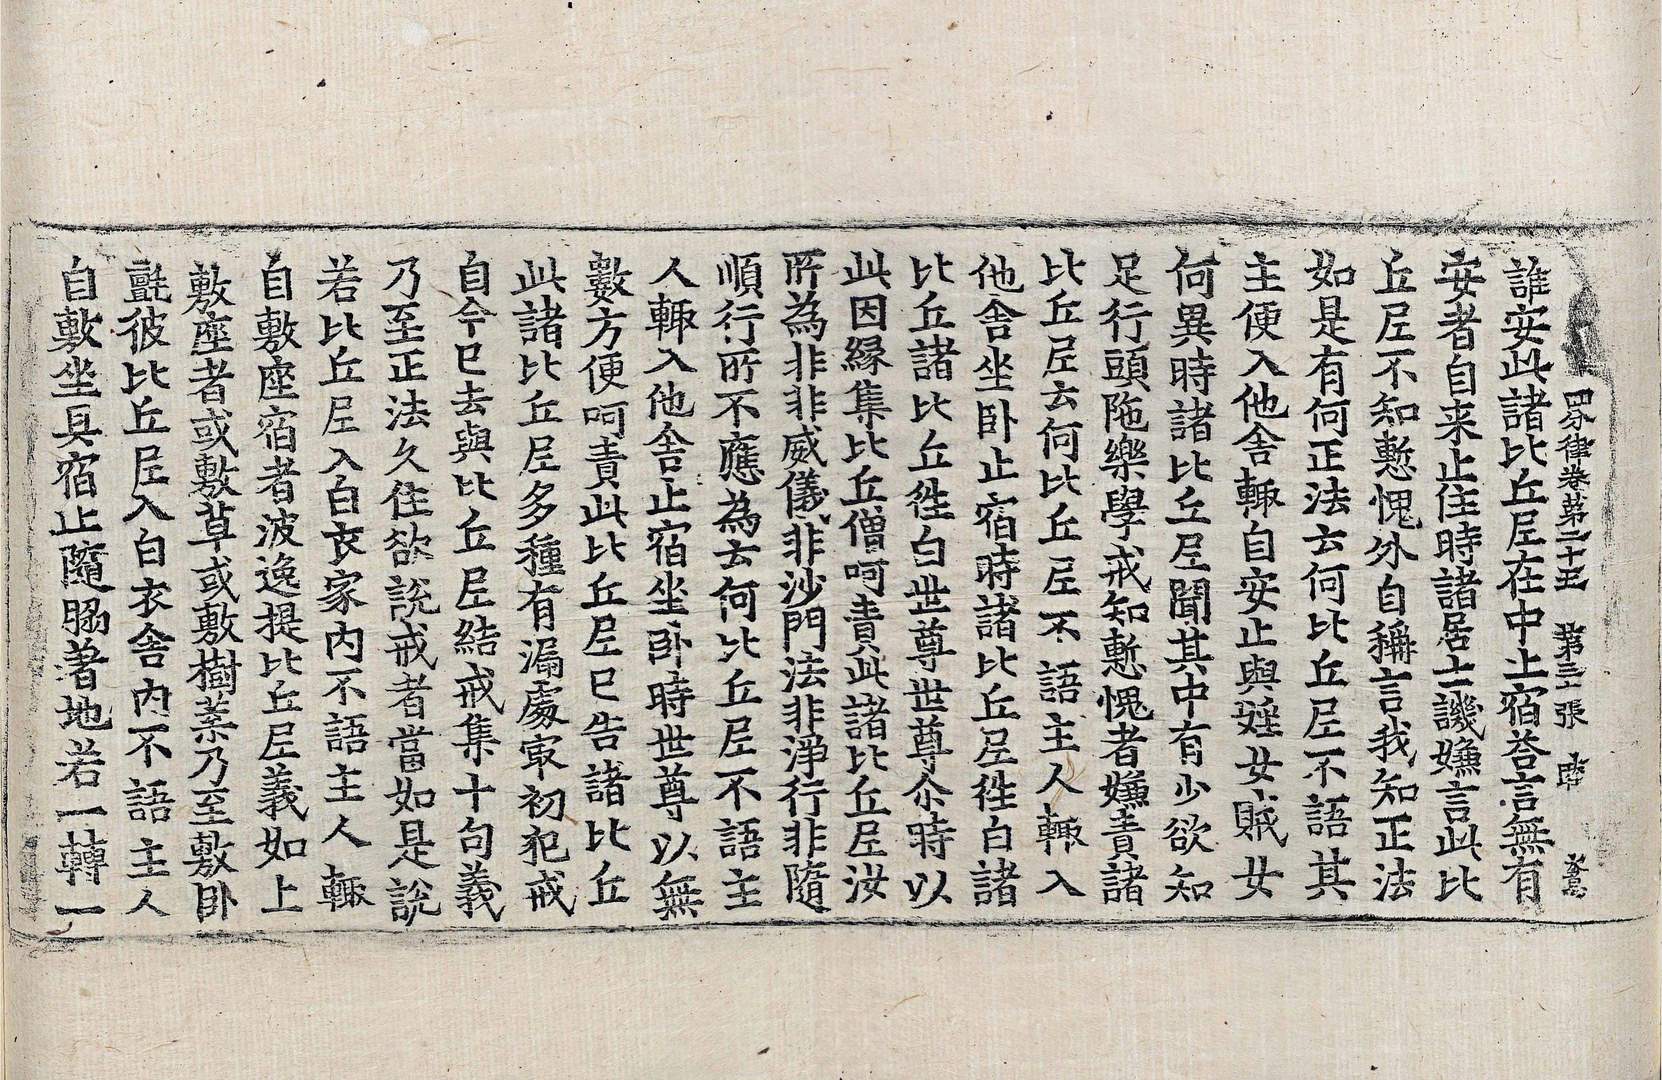 四分律卷第二十五 第三十張
誰安此諸比丘尼在中止宿荅言無有
安者自来止住時諸居士譏嫌言此比
丘尼不知慙愧外自稱言我知正法
如是有何正法云何比丘尼不語其
主便入他舍輙自安止與婬女賊女
何異時諸比丘尼聞其中有少欲知
足行頭陁樂學戒知慙愧者嫌責諸
比丘尼云何比丘尼不語主人輙入
他舍坐卧止宿時諸比丘尼徃白諸
比丘諸比丘徃白世尊世尊尒時以
此因縁集比丘僧呵責此諸比丘尼汝
所為非非威儀非沙門法非淨行非隨
順行所不應為云何比丘尼不語主
人輙入他舍止宿坐卧時世尊以無
數方便呵責此比丘尼已告諸比丘
此諸比丘尼多種有漏處冣初犯戒
自今已去與比丘尼結戒集十句義
乃至正法久住欲說戒者當如是說
若比丘尼入白衣家内不語主人輙
自敷座宿者波逸提比丘尼義如上
敷座者或敷草或敷樹葉乃至敷卧
氈彼比丘尼入白衣舍内不語主人
自敷坐具宿止隨脇著地若一轉一